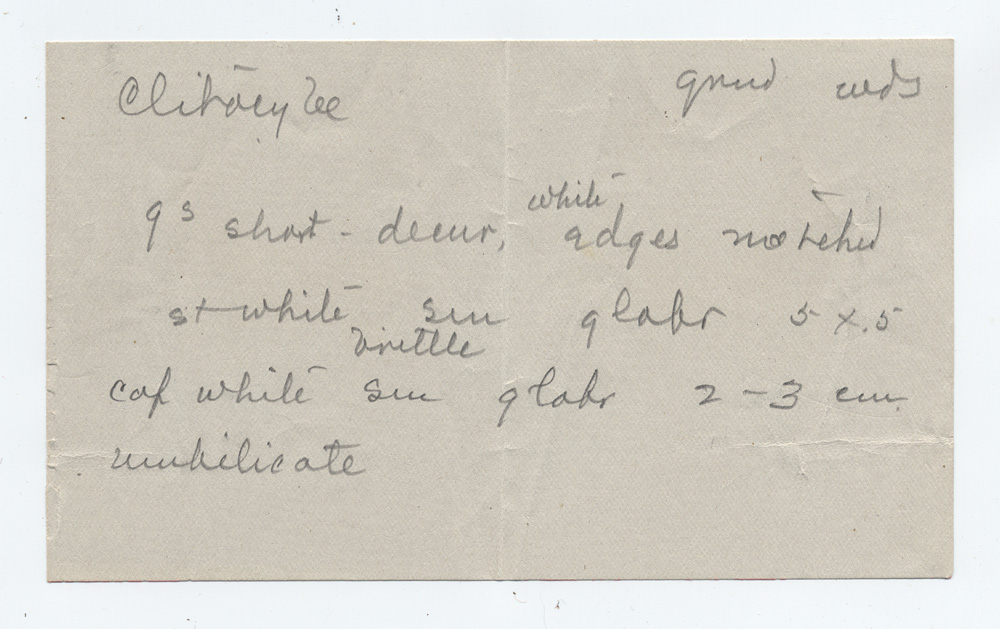 Clitocybe grnd wds
gs short-decur, white edges notched
st white sm glabr 5 x .5
brittle
cap white sm glabr 2-3 cm
umbilicate